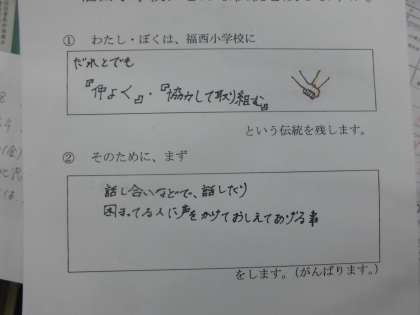 ① わたし・ぼくは、福西小学校に
だれとでも
『仲よく』・『協力して取り組む』
という伝統を残します。
② そのために、まず
話し合いなどで、話したり
困ってる人に声をかけておしえてあげる事
をします。(がんばります。)